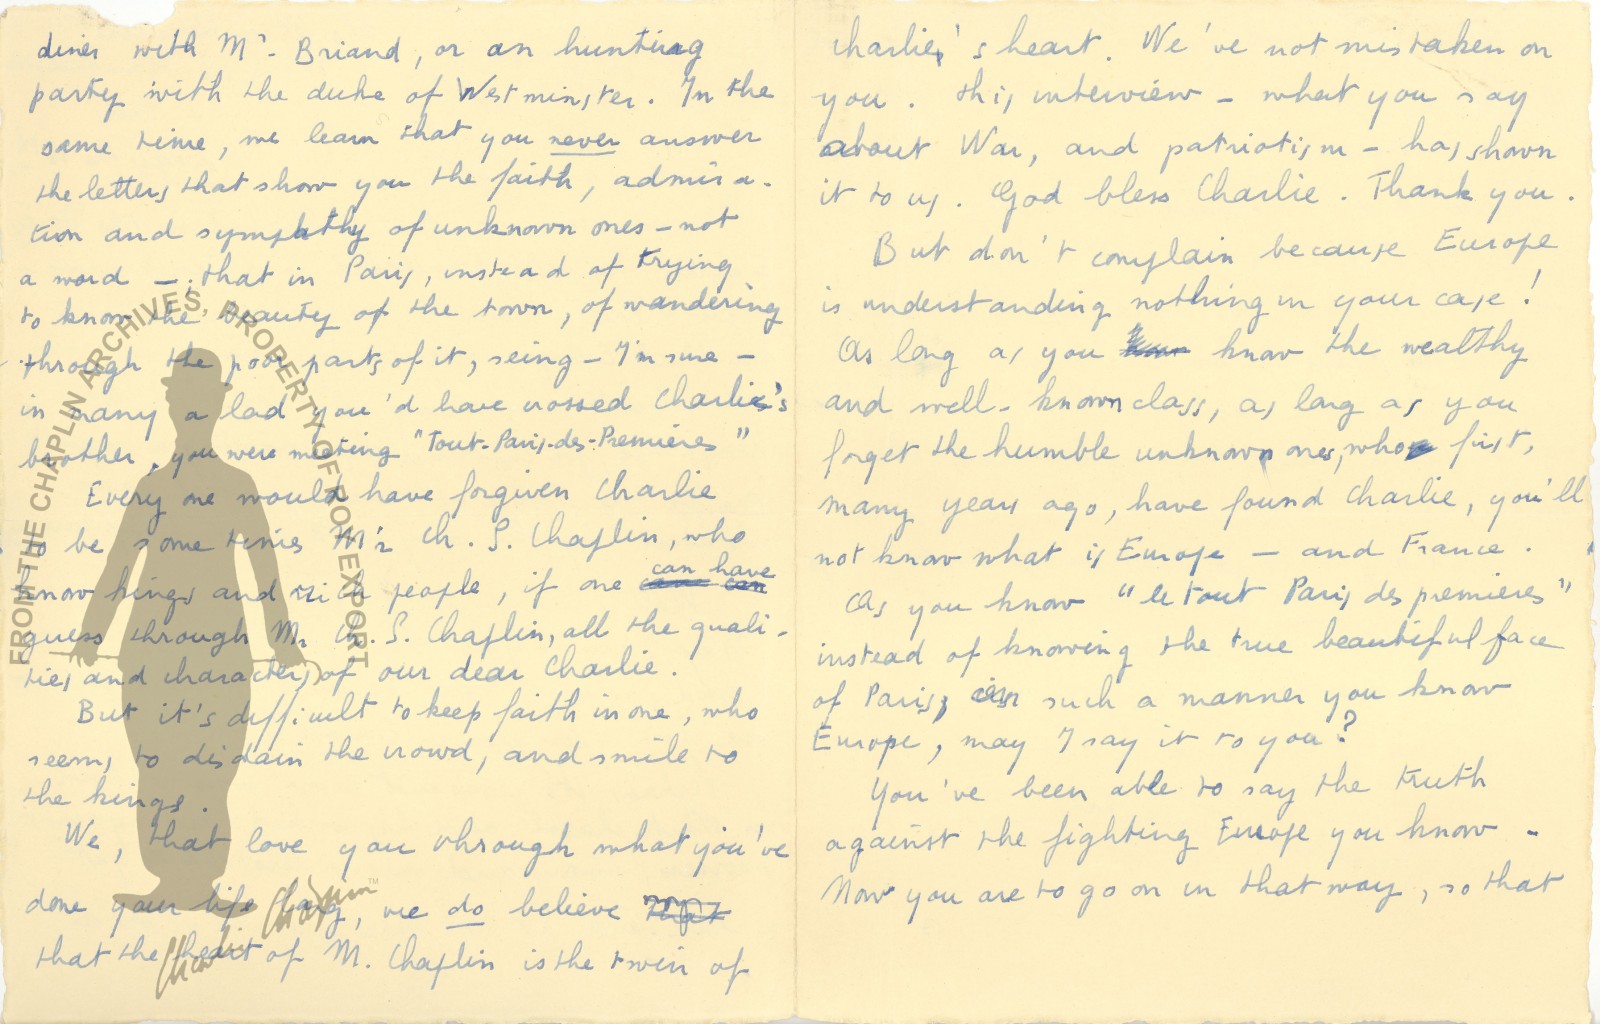 diner with Mr. Briand, or an hunting
party with the duke of Westminster. In the
same time, we learn that you never answer
the letters that show you the faith, admira-
tion and sympathy of unknown ones – not
a word –; that in Paris, instead of trying
to know the beauty of the town, of wandering
through the poor parts of it, seing – I'm sure –
in many a lad you'd have crossed Charlie's
brother, you were meeting "Tout-Paris-des-Premières"
Every one would have forgiven Charlie
to be some times Mr Ch. S. Chaplin, who
know kings and rich people, if one can have
guess through Mr Ch. S. Chaplin, all the quali-
ties and characters of our dear Charlie.
But it's difficult to keep faith in one, who
seems to disdain the crowd, and smile to
the kings.
We, that love you through what you've
done your life long, we do believe
that the heart of M. Chaplin is the twin of
Charlie's heart. We've not mistaken on
you. This interview – what you say
about War, and patriotism – has shown
it to us. God bless Charlie. Thank you.
But don't complain because Europe
is understanding nothing in your case!
As long as you know the wealthy
and well-known class, as long as you
forget the humble unknown ones, who first,
many years ago, have found Charlie, you'll
not know what is Europe – and France.
As you know "le tout Paris des premières"
instead of knowing the true beautiful face
of Paris, in such a manner you know
Europe, may I say it to you?
You've been able to say the truth
against the fighting Europe you know –
Now you are to go on in that way, so that
FROM THE CHAPLIN ARCHIVES, PROPERTY OF ROY EXPORT
Charlie Chaplin™